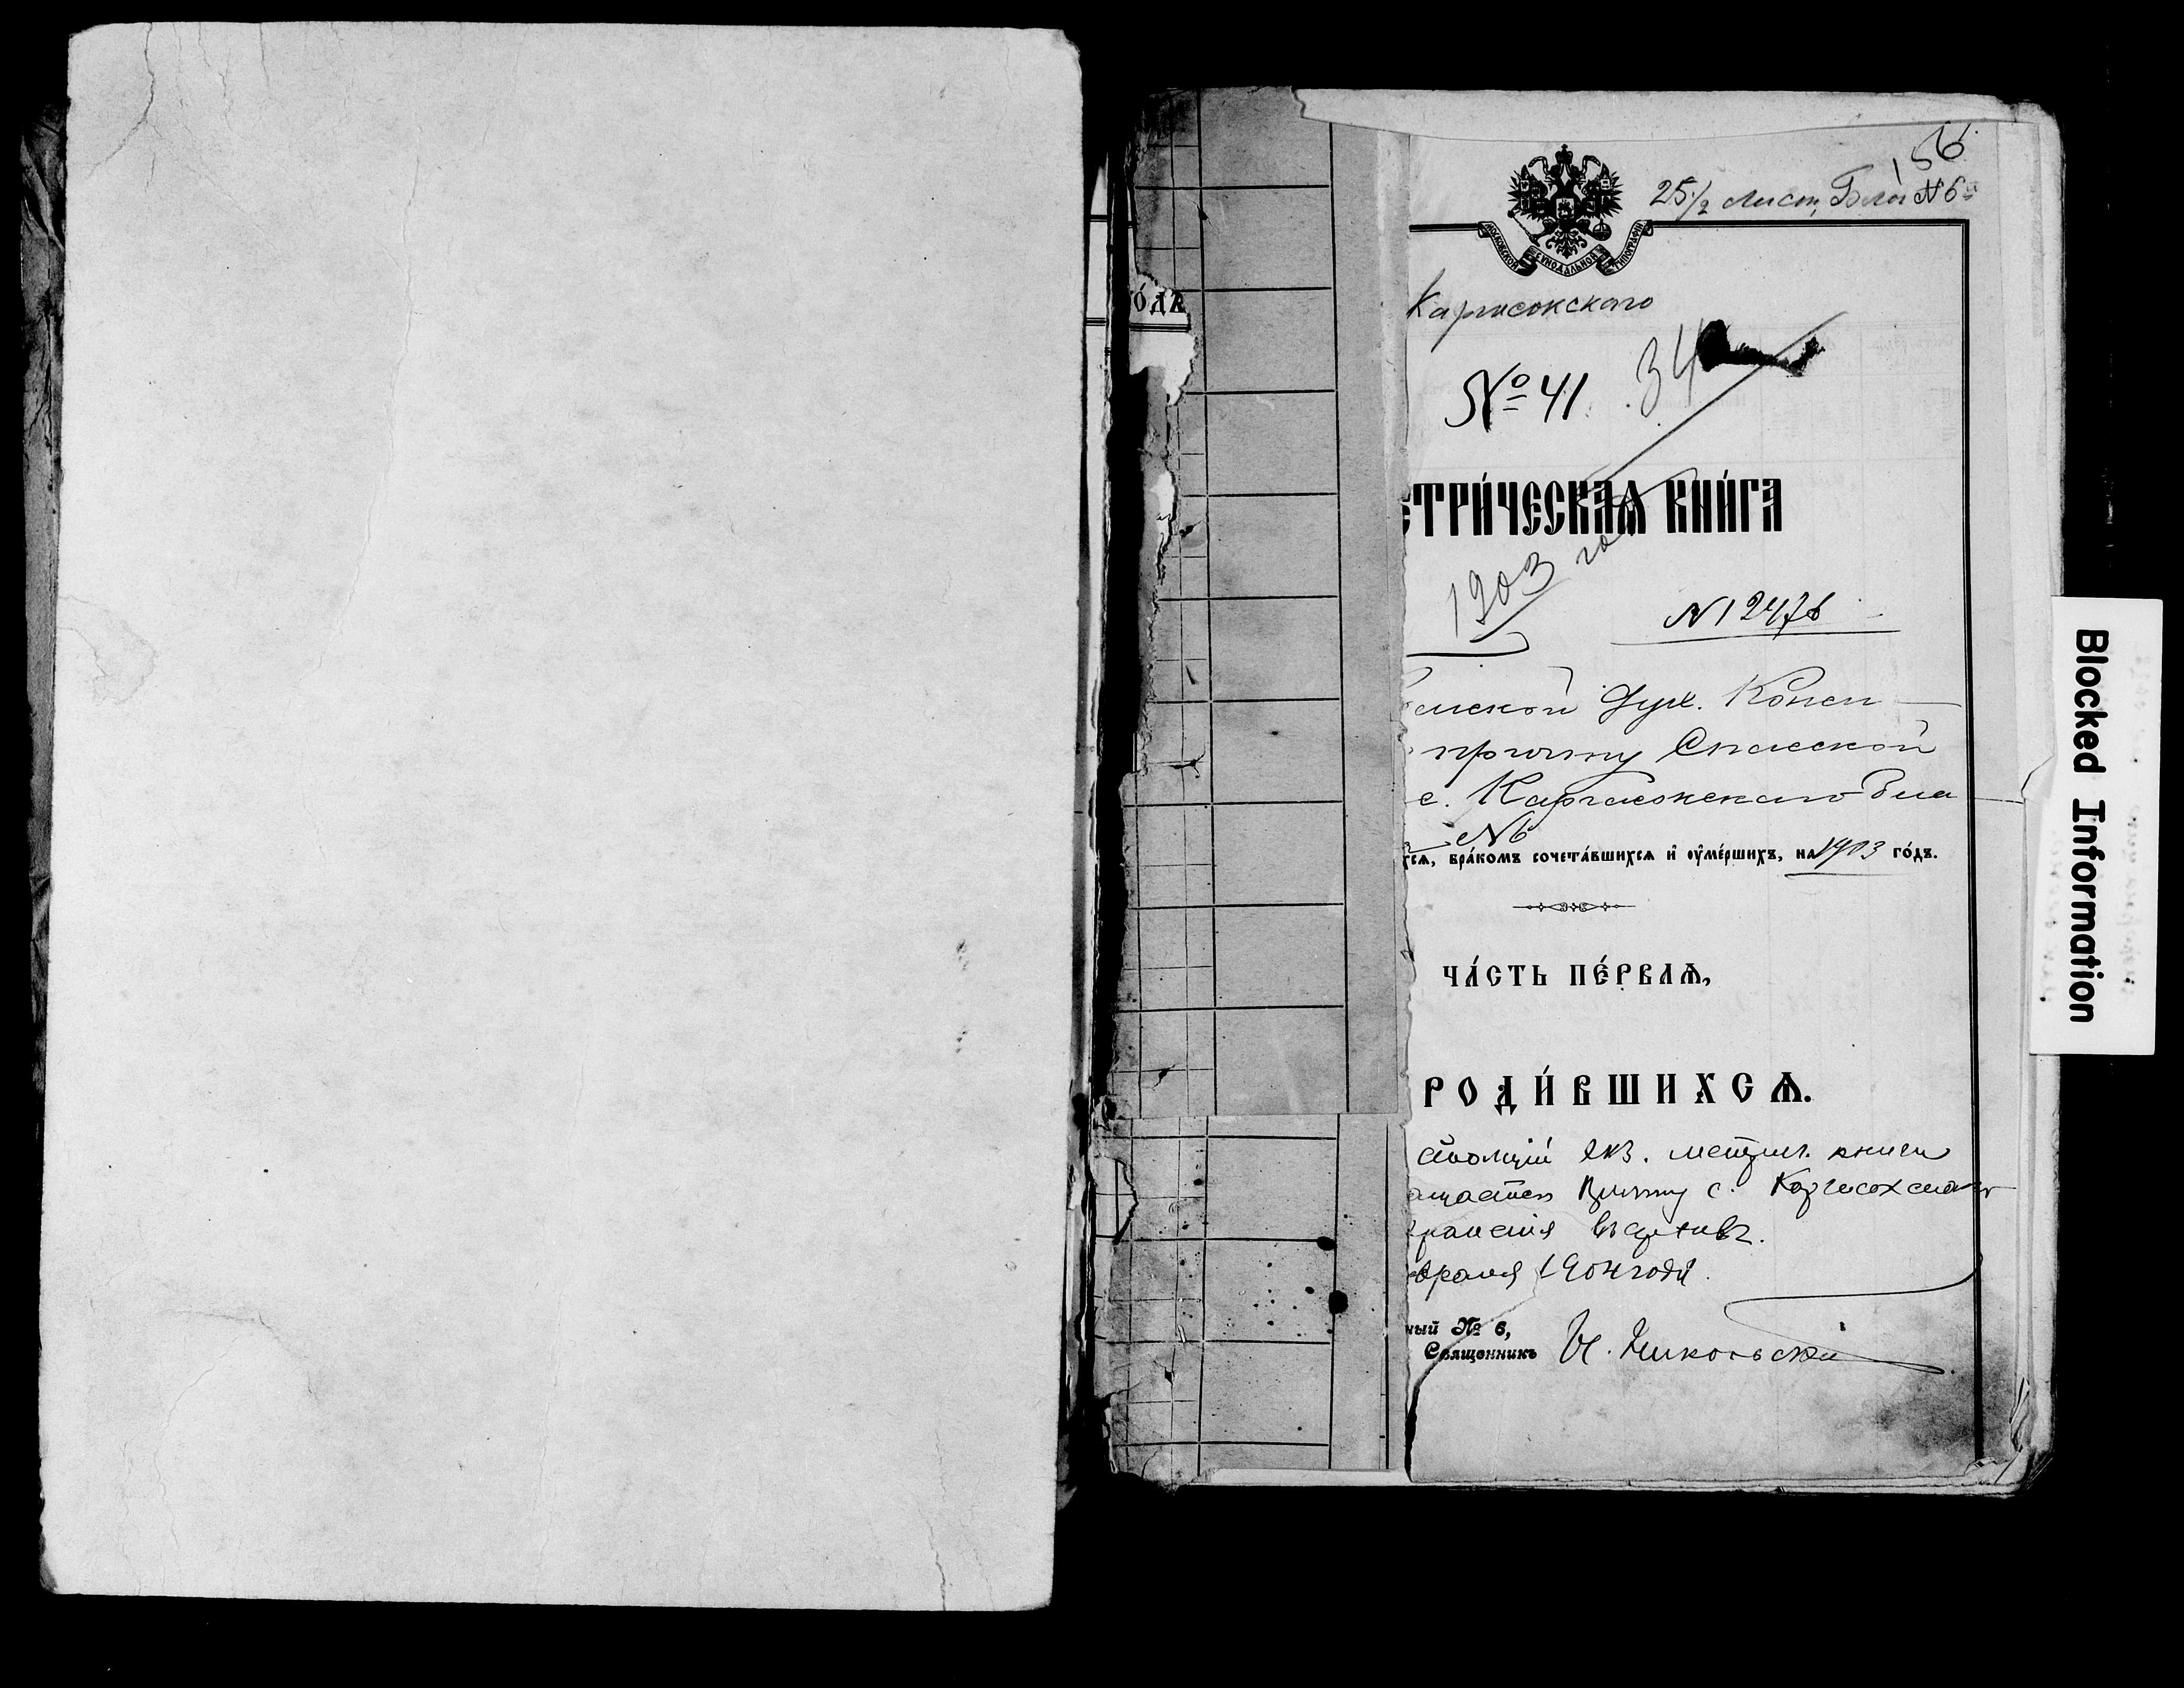 156
25½ лист. Благ № 6й
МОСКОВСКОЙ СѴНОДАЛЬНОЙ ТИПОГРАФІИ
Каргасокскаго
№ 41. 34
о́дѣ
ЕТРИ́ЧЕСКАѦ КНИ́ГА
1903 год
N 1247
омской Дух. Конси
причту Спасской
с. Каргасокскаго Бла
№ 6
хсѧ, бра́комъ сочета́вшихсѧ и҆ ѹ҆ме́ршихъ, на 1903 го́дъ.
ЧА́СТЬ ПЕ́РВАѦ,
РОДИ́ВШИХСѦ.
стоящій экз. метрич. книги
ащается причту с. Каргасокскаго
хранения въ архивъ.
враля 1904 года.
ный № 6,
Священникъ И. Никольскій
Blocked Information